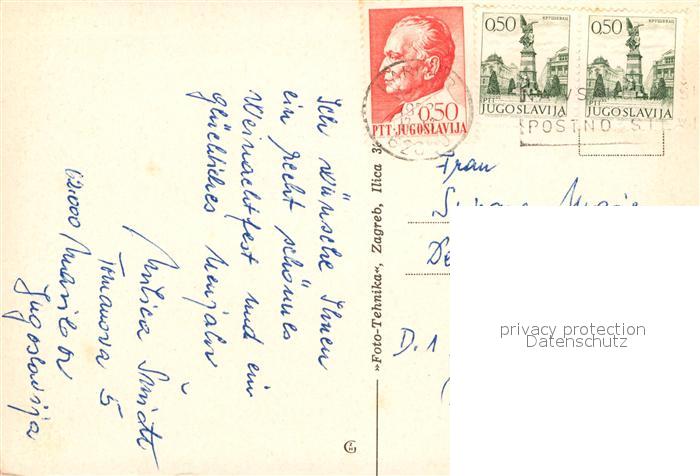 Ich wünsche Ihnen
ein recht schönes
Weinachtfest und ein
glückliches Neujahr
Milica
Tomanova 5
62000 Maribor
Jugoslavija
»Foto-Tehnika«, Zagreb, Ilica
0.50
PTT-JUGOSLAVIJA
0.50
КРУШЕВАЦ
PTT
JUGOSLAVIJA
0.50
КРУШЕВАЦ
PTT
JUGOSLAVIJA
POSTNO
Frau
D. 1
privacy protection
Datenschutz